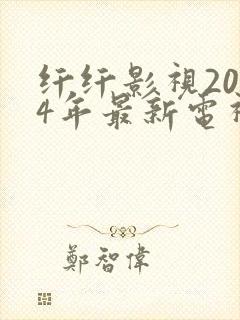 纤纤影視20
4年最新電
鄭智偉